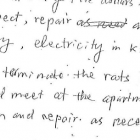 ect, repair as
y, electricity in k
terminate the rats
d meet at the apartm
n and repair. as nece